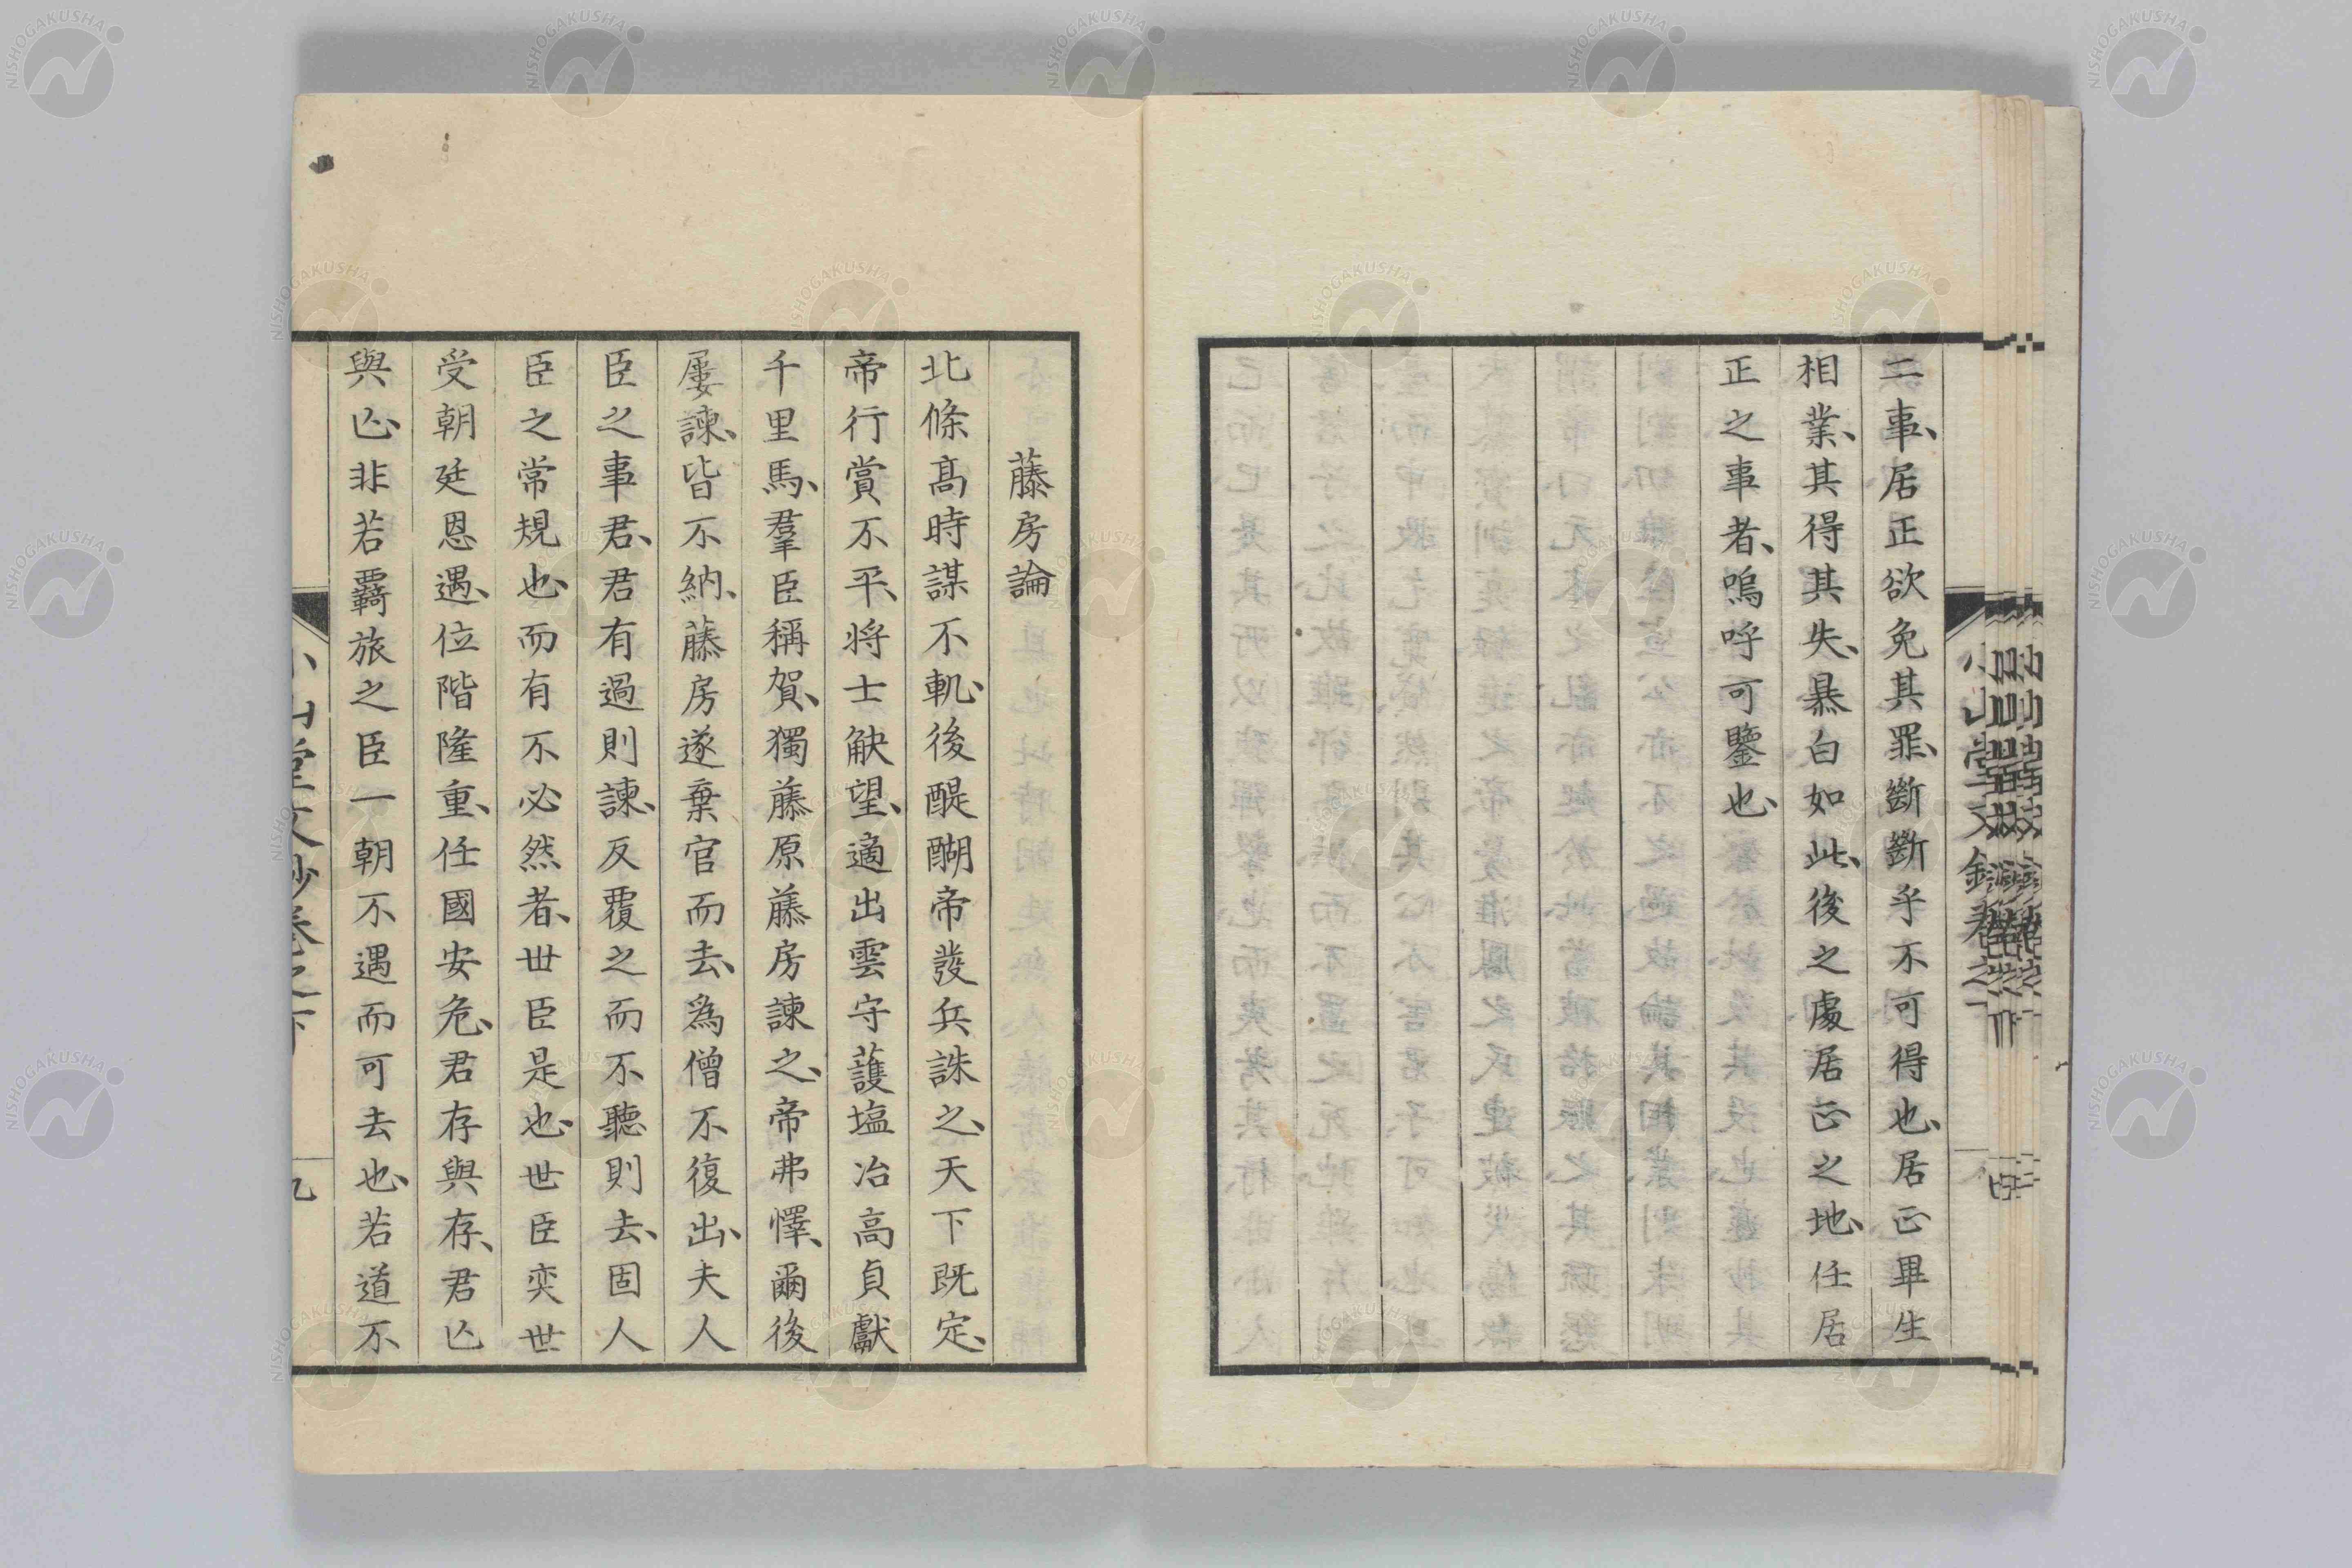 二事、居正欲免其罪、斷斷乎不可得也、居正畢生
相業、其得其失、暴白如此、後之處居正之地、任居
正之事者、嗚呼可鑒也、
藤房論
北條髙時謀不軌、後醍醐帝發兵誅之、天下既定、
帝行賞不平、将士觖望、適出雲守護塩冶高貞獻
千里馬、羣臣稱賀、獨藤原藤房諫之、帝弗懌、爾後
屢諫、皆不納、藤房遂棄官而去、爲僧不復出、夫人
臣之事君、君有過則諫、反覆之而不聽則去、固人
臣之常規也、而有不必然者、世臣是也、世臣奕世
受朝廷恩遇、位階隆重、任國安危、君存與存、君亾
與亾、非若覉旅之臣一朝不遇而可去也、若道不
小山堂文鈔卷之下
九
NISHOGAKUSHA